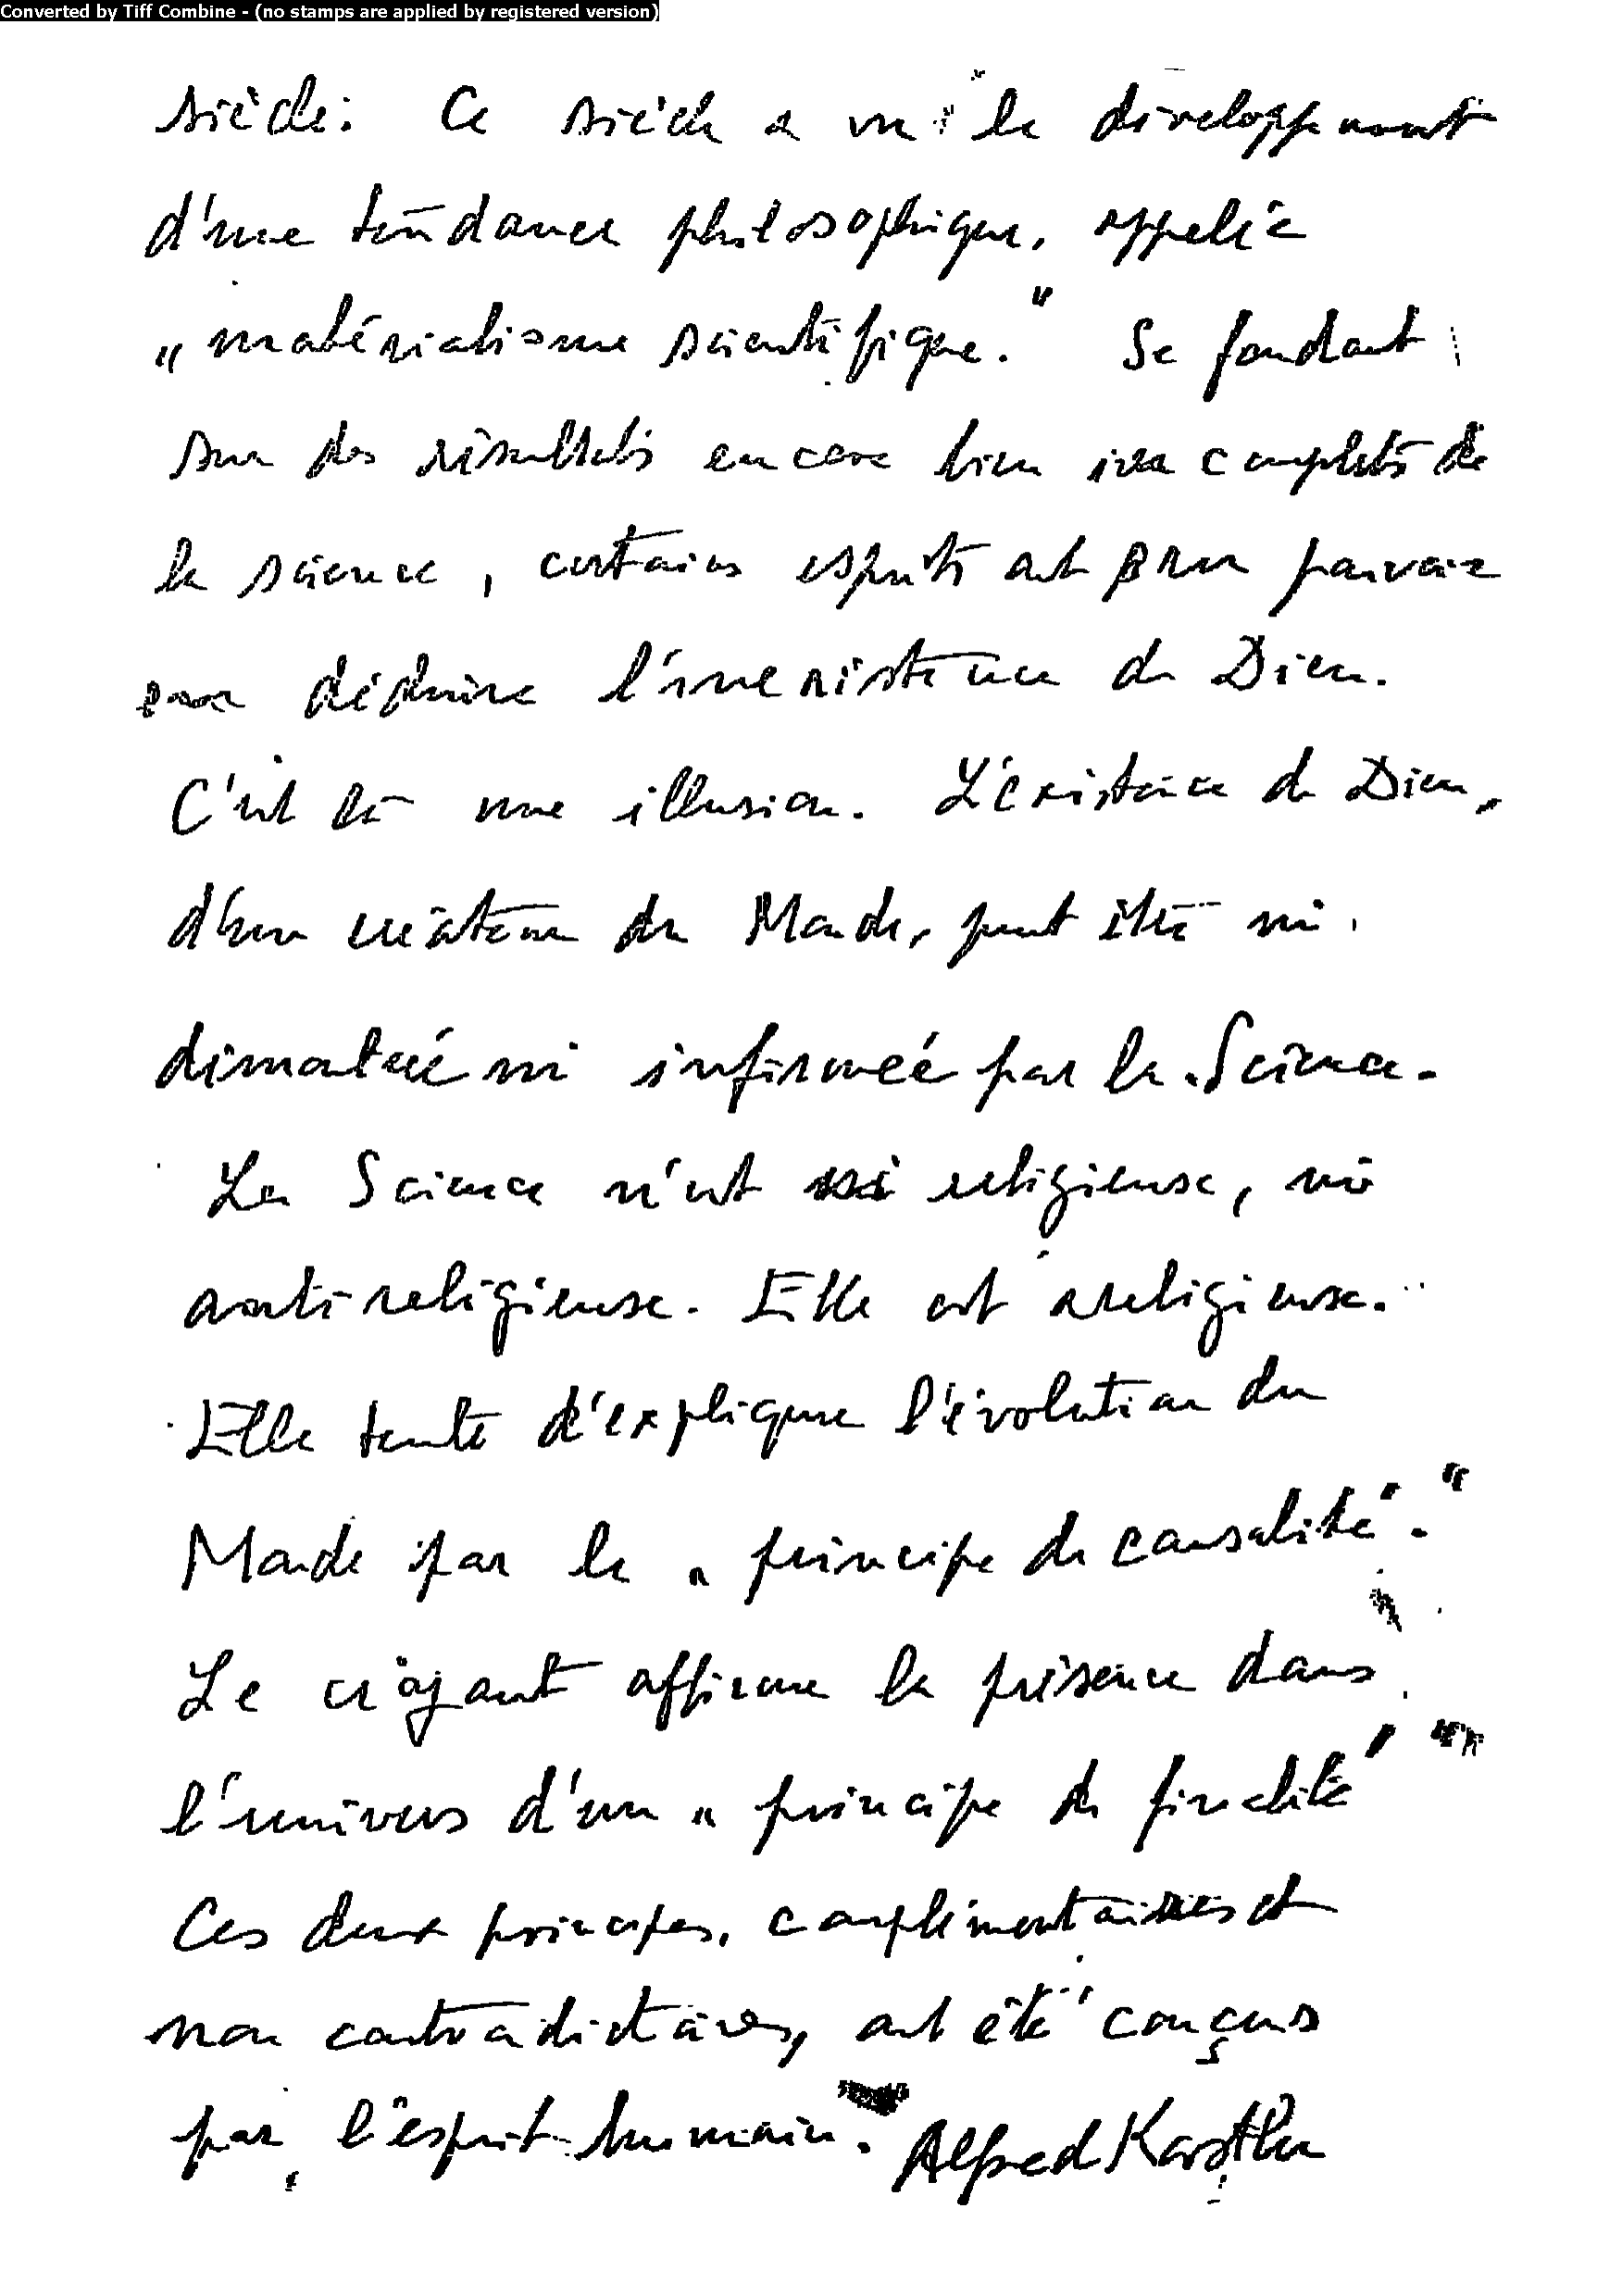 Converted by Tiff Combine - (no stamps are applied by registered version)
siècle: Ce siècle a vu le développement
d'une tendance philosophique, appelée
„matérialisme scientifique." Se fondant
sur des résultats encore bien incomplets de
la science, certains esprits ont pensé pouvoir
en déduire l'inexistence de Dieu.
C'est là une illusion. L'existence de Dieu,
d'un créateur du Monde, peut être ni
démontrée ni infirmée par la Science.
La Science n'est ni religieuse, ni
antireligieuse. Elle est areligieuse.
Elle tente d'expliquer l'évolution du
Monde par le „principe de causalité".
Le croyant affirme la présence dans
l'univers d'un „principe de finalité"
Ces deux principes, complémentaires et
non contradictoires, ont été conçus
par l'esprit humain. Alfred Kastler